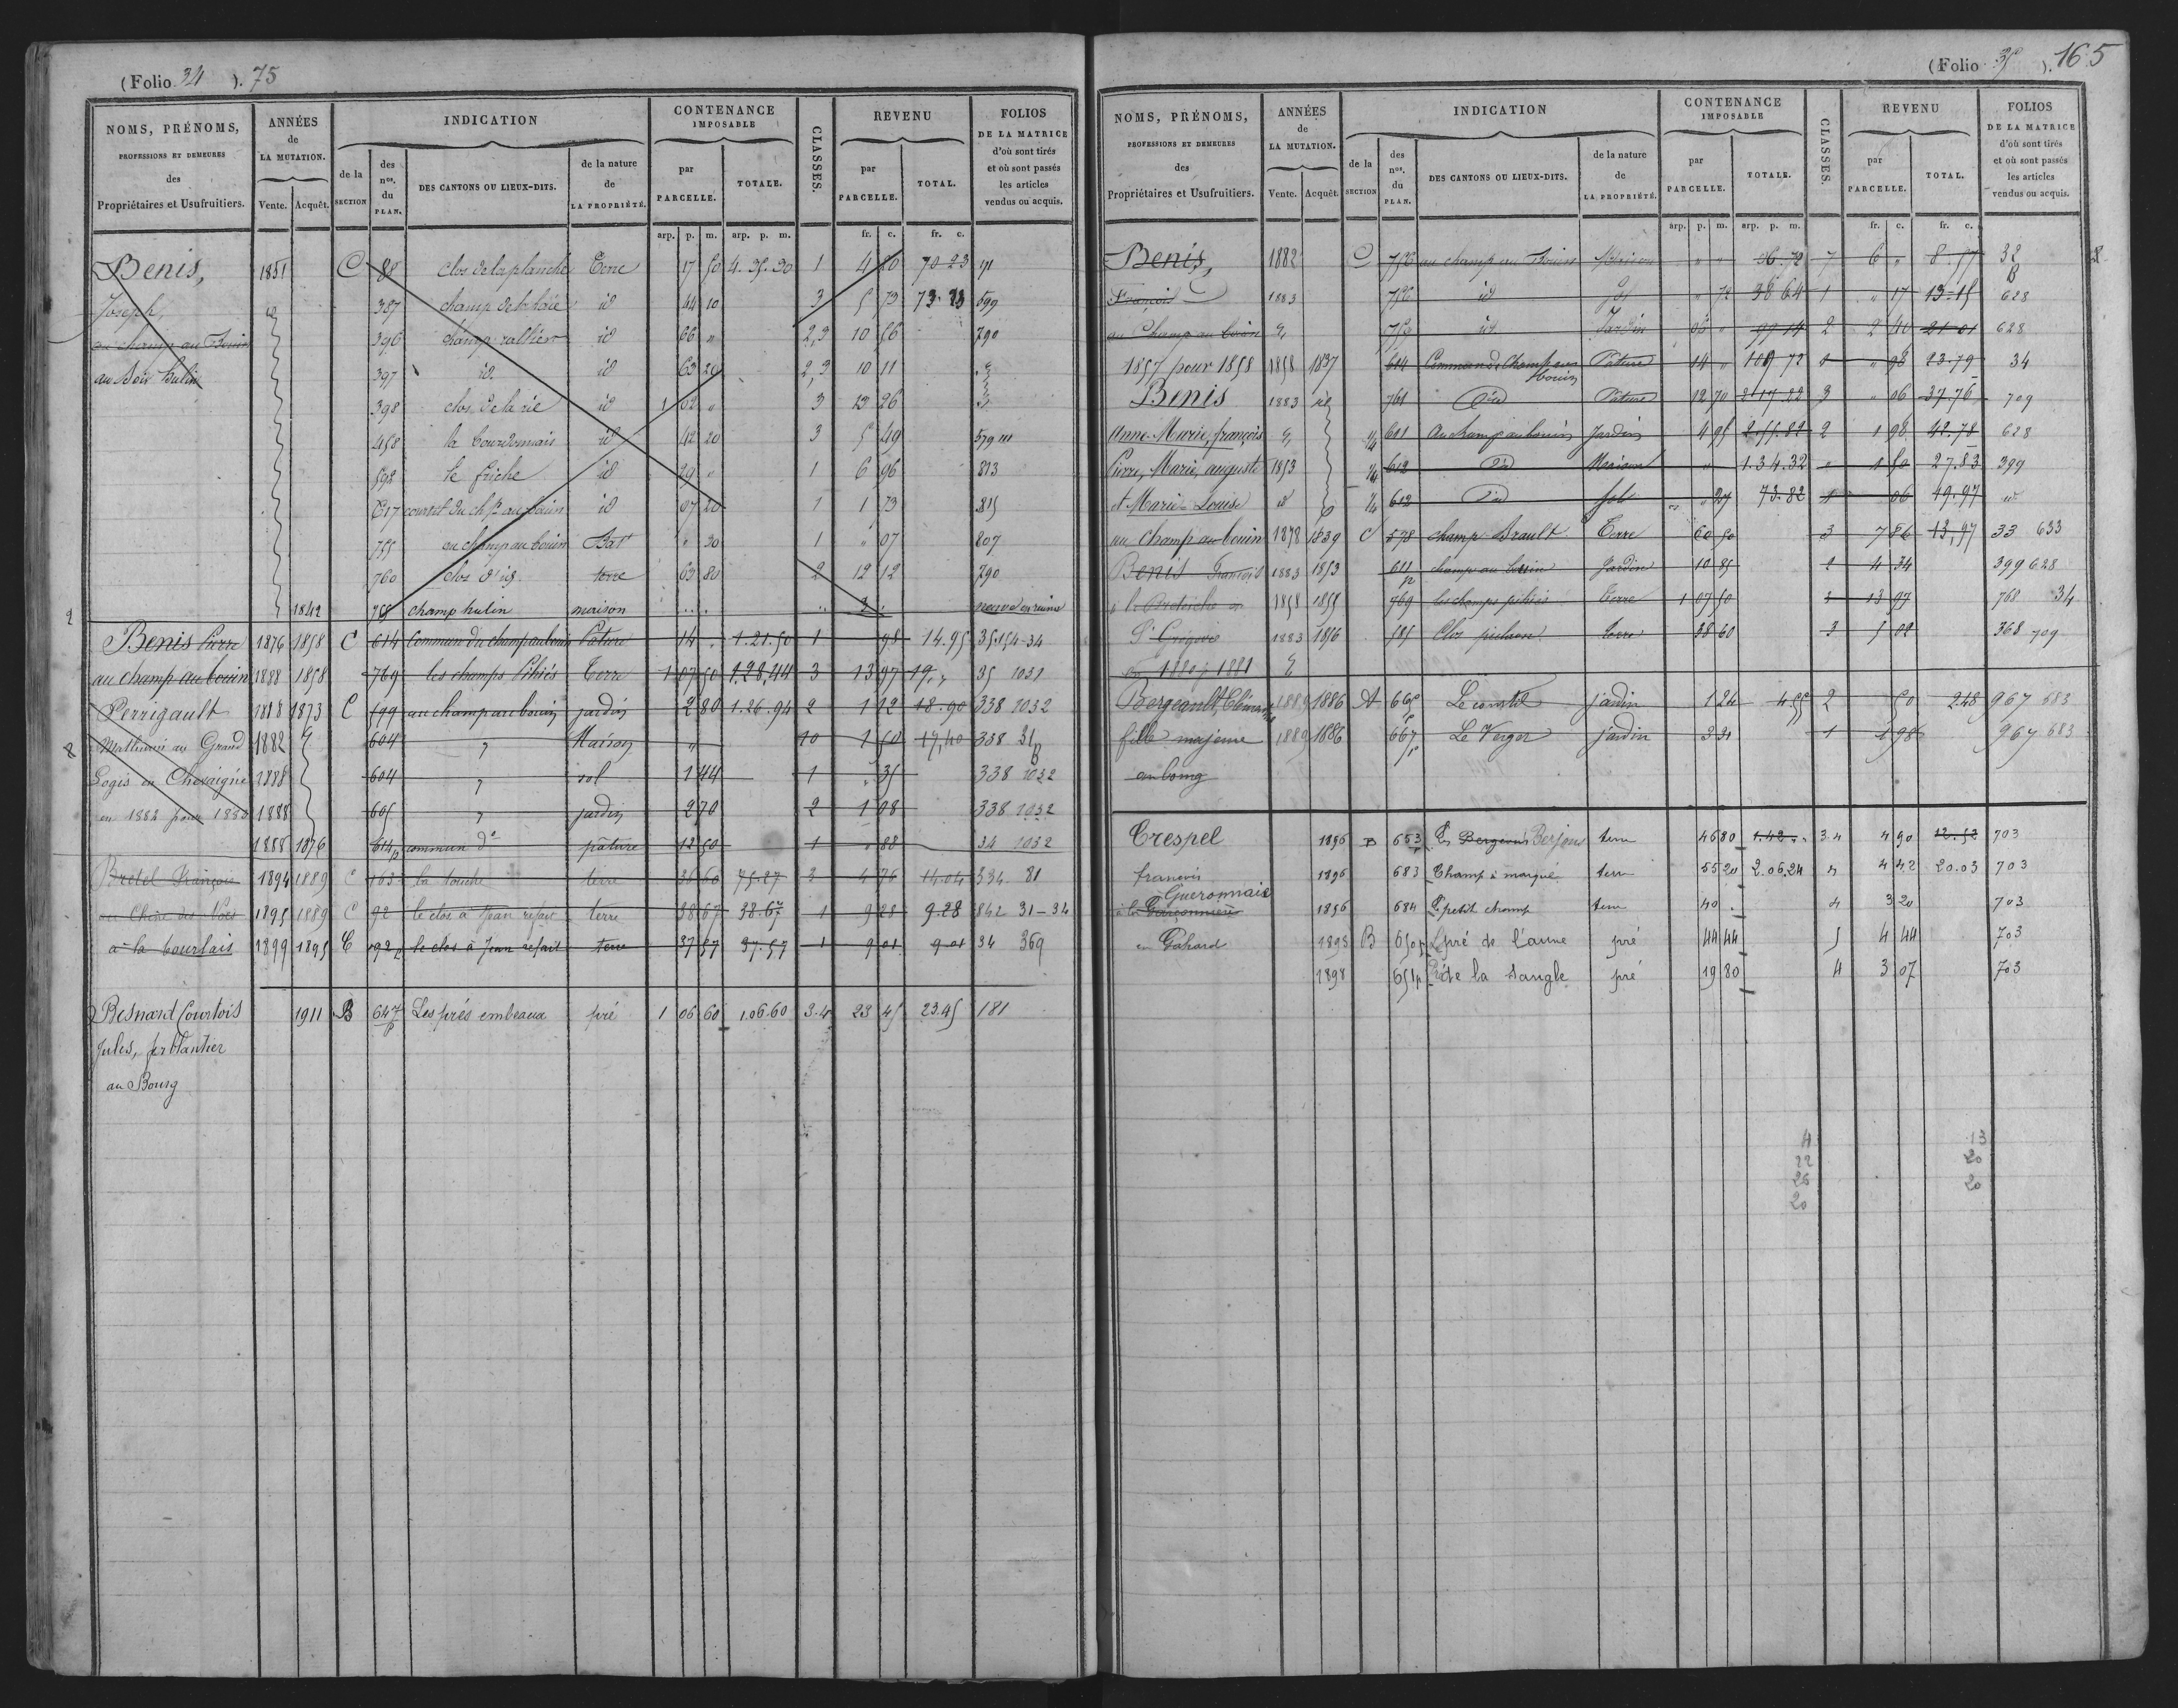 (Folio 34 ). 75
NOMS, PRÉNOMS,
PROFESSIONS ET DEMEURES
des
Propriétaires et Usufruitiers.
ANNÉES
de
LA MUTATION.
Vente. Acquêt.
INDICATION
de la
SECTION
des
nos.
du
PLAN.
DES CANTONS OU LIEUX-DITS.
de la nature
de
LA PROPRIÉTÉ.
CONTENANCE
IMPOSABLE
par
PARCELLE.
TOTALE.
CLASSES.
REVENU
par
PARCELLE.
TOTAL.
FOLIOS
DE LA MATRICE
d'où sont tirés
et où sont passés
les articles
vendus ou acquis.
arp. p. m. arp. p. m. fr. c. fr. c.
Benis, 1851 C 88 clos de la planche Terre 17 50 4.35.30 1 4 20 70 23
Joseph, id 387 champ de la haie id 44 10 3 5 73 599
au champ au Bouin 396 champ rallier id 66 " 2,3 10 56 790
au Soir hulin 397 id. id 63 20 2,3 10 11
398 clos de la rie id 1 02 " 3 23 26
458 la bourdonnais id 42 20 3 5 49 579
598 le friche id 29 " 1 6 96 813
617 courtil du chp au bouin id 07 20 1 1 73 815
755 au champ au bouin Bat " 30 1 " 07 807
760 clos d'id. terre 63 80 2 12 12 790
1842 champ hulin maison
Benis Pierre 1876 1858 C 614 Commun du champ au bouin Pature 14 . 1.21.50 1 98 14.95 35.154-34
au champ au bouin 1888 1858 769 les champs Pihiés Terre 1 07 50 1.28,44 3 13 97 19." 35 1031
Perrigault 1888 1873 C 599 au champ au bouin jardin 2 80 1.26.94 2 1 12 18.90 338 1032
Mathurin au Grand 1882 604 " Maison " 10 1 50 17,40 338 31
Logis en Chevaigné 1888 604 " sol 1 44 1 " 35 338 1032
en 1882 pour 1883 1888 605 " jardin 2 70 2 1 08 338 1032
1888 1876 614p commun do pature 12 50 1 " 88 34 1032
Bretel François 1894 1889 C 163 la touche terre 36 60 75.27 3 4 76 14.04 334 81
au Chêne des Noes 1895 1889 C 92 le clos à Jean refait terre 38 67 38.67 1 9 28 9.28 842 31-34
à la bourlais 1899 1895 C 92p le clos à Jean refait terre 37 57 37.57 1 9 01 9 01 34 369
Besnard Courtois 1911 B 647p Les prés embeaux pré 1 06 60 1.06.60 3.4 23 45 23.45 181
Jules, ferblantier
au Bourg
(Folio 35 ). 165
NOMS, PRÉNOMS,
PROFESSIONS ET DEMEURES
des
Propriétaires et Usufruitiers.
ANNÉES
de
LA MUTATION.
Vente. Acquêt.
INDICATION
de la
SECTION
des
nos.
du
PLAN.
DES CANTONS OU LIEUX-DITS.
de la nature
de
LA PROPRIÉTÉ.
CONTENANCE
IMPOSABLE
par
PARCELLE.
TOTALE.
CLASSES.
REVENU
par
PARCELLE.
TOTAL.
FOLIOS
DE LA MATRICE
d'où sont tirés
et où sont passés
les articles
vendus ou acquis.
arp. p. m. arp. p. m. fr. c. fr. c.
Benis, 1882 C 756 au champ au Bouin Maison " " 7 6 " 8.57 32
François 1883 756 id Sol " 72 38 64 1 " 17 13-15 628
au Champ au bouin id Jardin 06 " 2 2 40 21-01 628
1857 pour 1858 1858 1837 614 Commun du Champ au bouin Pature 14 " 1 " 98 23-79 34
Benis 1883 761 Do Pature 12 70 3 " 06 37-76 709
Anne-Marie, françois 601 Au champ au bouin Jardin 4 95 2.55.82 2 1 98 42-78 628
Pierre, Marie, auguste 1853 612 Do Maison " 1.34.32 " 1 50 27.83 399
et Marie-Louise 612 Do Sol " 27 73.82 1 06 19.97
au champ au bouin 1878 1839 C 578 champ Brault Terre 60 50 3 7 86 13,97 33 633
Benis François 1883 1853 611p champ au bouin Jardin 10 85 2 4 34 399 628
à la Bretesche en 1858 1855 769 les champs pihiés Terre 1 07 50 3 13 97 768 34
St Grégoire 1883 1856 585 Clos pichon Terre 38 60 3 5 02 368 709
en 1880 p 1881
Bergeault, Clémentine 1889 1886 A 665p Le courtil jardin 1 24 4 55 2 50 2.48 967 683
fille majeure 1889 1886 667p Le Verger jardin 3 31 1 1 98 967 683
au bourg
Crespel 1896 B 653p Bergeous Berjous terre 46 80 1.42.. 3.4 4 90 12.52 703
francois 1896 683 Champ à marqué terre 55 20 2.06.24 4 42 20.03 703
à la Garçonnière Gueronnais 1896 684 Le petit champ terre 40 . 4 3 20 703
en Gahard 1898 B 650p Le pré de l'aune pré 44 44 5 4 44 703
1898 651p Pré de la Sangle pré 19 80 4 3 07 703
4 13
22 20
26 20
20